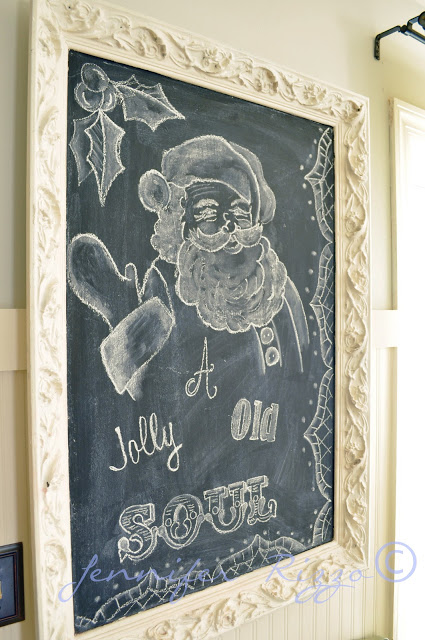 A
Jolly Old
SOUL
Jennifer Rizzo ©